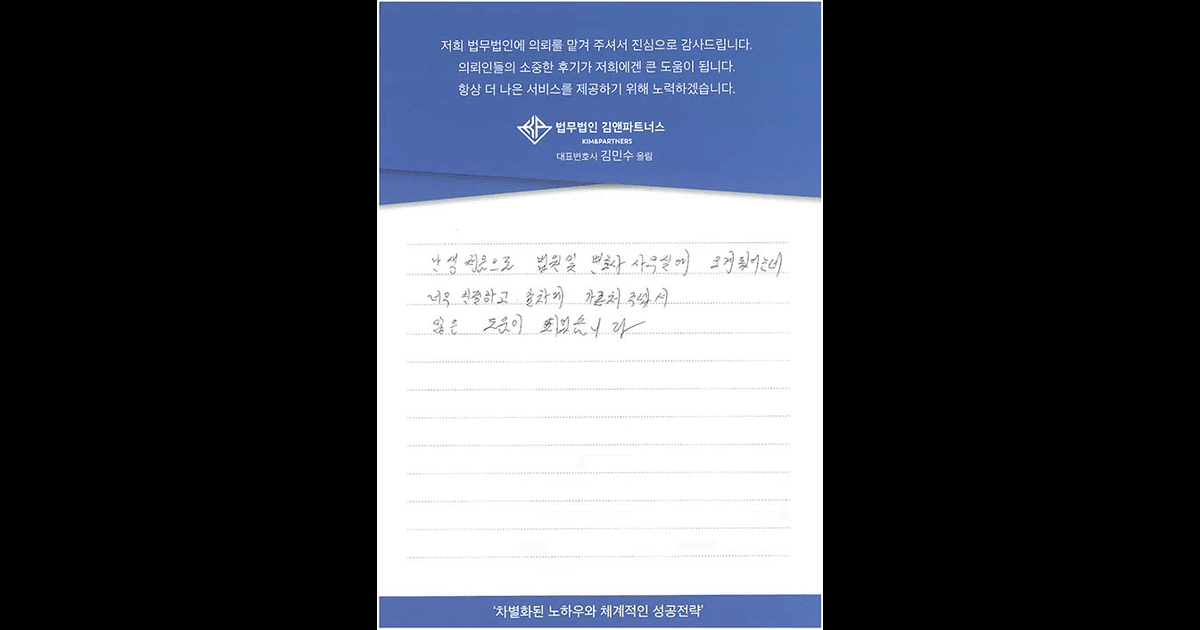 저희 법무법인에 의뢰를 맡겨 주셔서 진심으로 감사드립니다.
의뢰인들의 소중한 후기가 저희에겐 큰 도움이 됩니다.
항상 더 나은 서비스를 제공하기 위해 노력하겠습니다.
법무법인 김앤파트너스
KIM&PARTNERS
대표변호사 김민수 올림
난생 처음으로 법원및 변호사 사무실에 오게 됬었는데
너무 친절하고 알차게 가르쳐 주셔서
많은 도움이 되었습니다
'차별화된 노하우와 체계적인 성공전략'